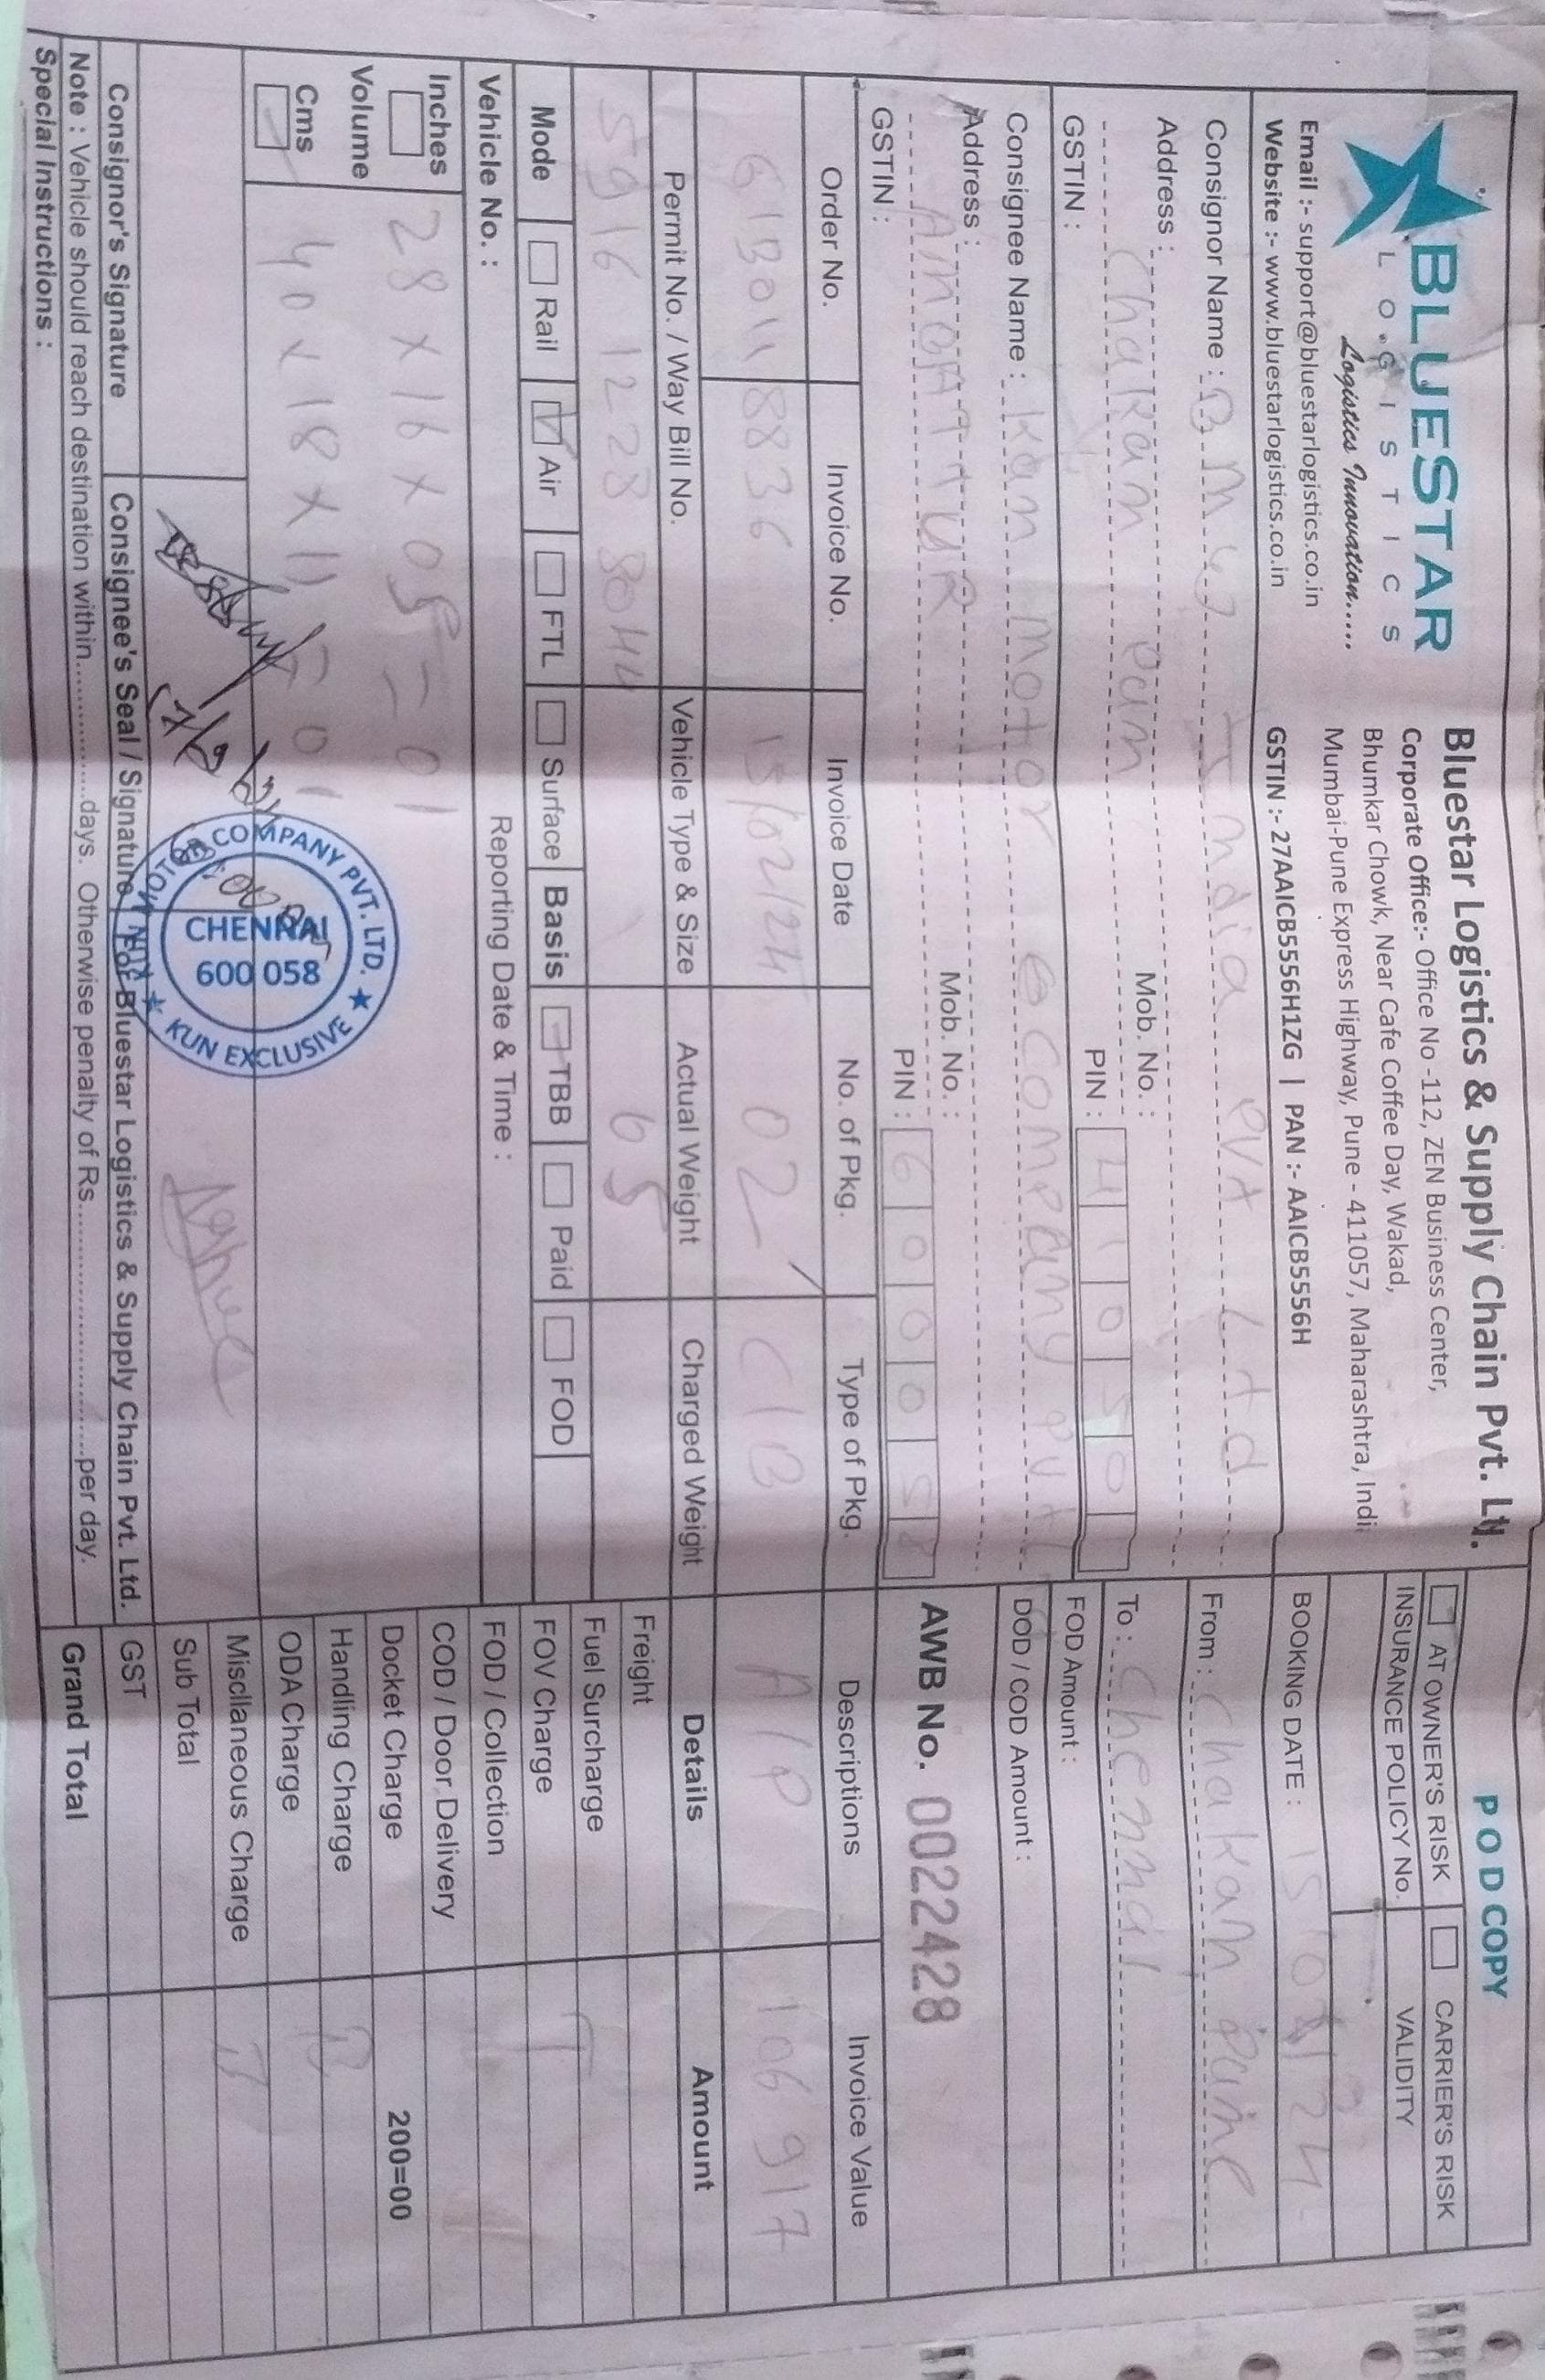 BLUESTAR
LOGISTICS
Logistics Innovation....
Email :- support@bluestarlogistics.co.in
Website :- www.bluestarlogistics.co.in
Bluestar Logistics & Supply Chain Pvt. Lt.
Corporate Office:- Office No -112, ZEN Business Center,
Bhumkar Chowk, Near Cafe Coffee Day, Wakad,
Mumbai-Pune Express Highway, Pune - 411057, Maharashtra, Indi
GSTIN :- 27AAICB5556H1ZG | PAN :- AAICB5556H
POD COPY
AT OWNER'S RISK CARRIER'S RISK
INSURANCE POLICY No. VALIDITY
BOOKING DATE : 15/02/24
Consignor Name : India Pvt Ltd
Address :
Mob. No. :
Chakan
GSTIN : PIN : 410501
From : Chakan
To : Chennai
FOD Amount :
DOD / COD Amount :
Consignee Name : Kun motor company Pvt
Address :
Mob. No. :
AmBATTUR
GSTIN : PIN : 600058
AWB No. 0022428
Order No. Invoice No. Invoice Date No. of Pkg. Type of Pkg. Descriptions Invoice Value
8836 15/02/24 02 C/B A/P 106917
Permit No. / Way Bill No. Vehicle Type & Size Actual Weight Charged Weight Details Amount
5916 1228 8044 65
Freight
Fuel Surcharge
Mode Rail Air FTL Surface Basis TBB Paid FOD
FOV Charge
Vehicle No. : Reporting Date & Time :
FOD / Collection
COD / Door Delivery
Docket Charge 200=00
Handling Charge
ODA Charge
Miscllaneous Charge
Sub Total
GST
Grand Total
Inches
Volume
Cms
28 x 16 x 05 = 01
40 x 18 x 11 = 01
MOTOR COMPANY PVT. LTD.
CHENNAI
600 058
KUN EXCLUSIVE
Consignor's Signature Consignee's Seal / Signature For Bluestar Logistics & Supply Chain Pvt. Ltd.
Note : Vehicle should reach destination within..............days. Otherwise penalty of Rs..............................per day.
Special Instructions :